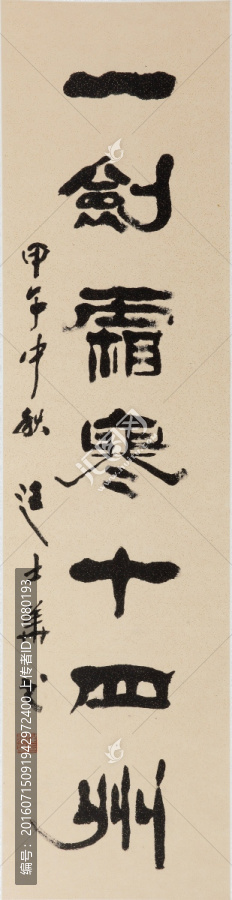 一劍霜寒十四州
甲午中秋 汪士
编号：20160715091942972400 上传者ID：1080193